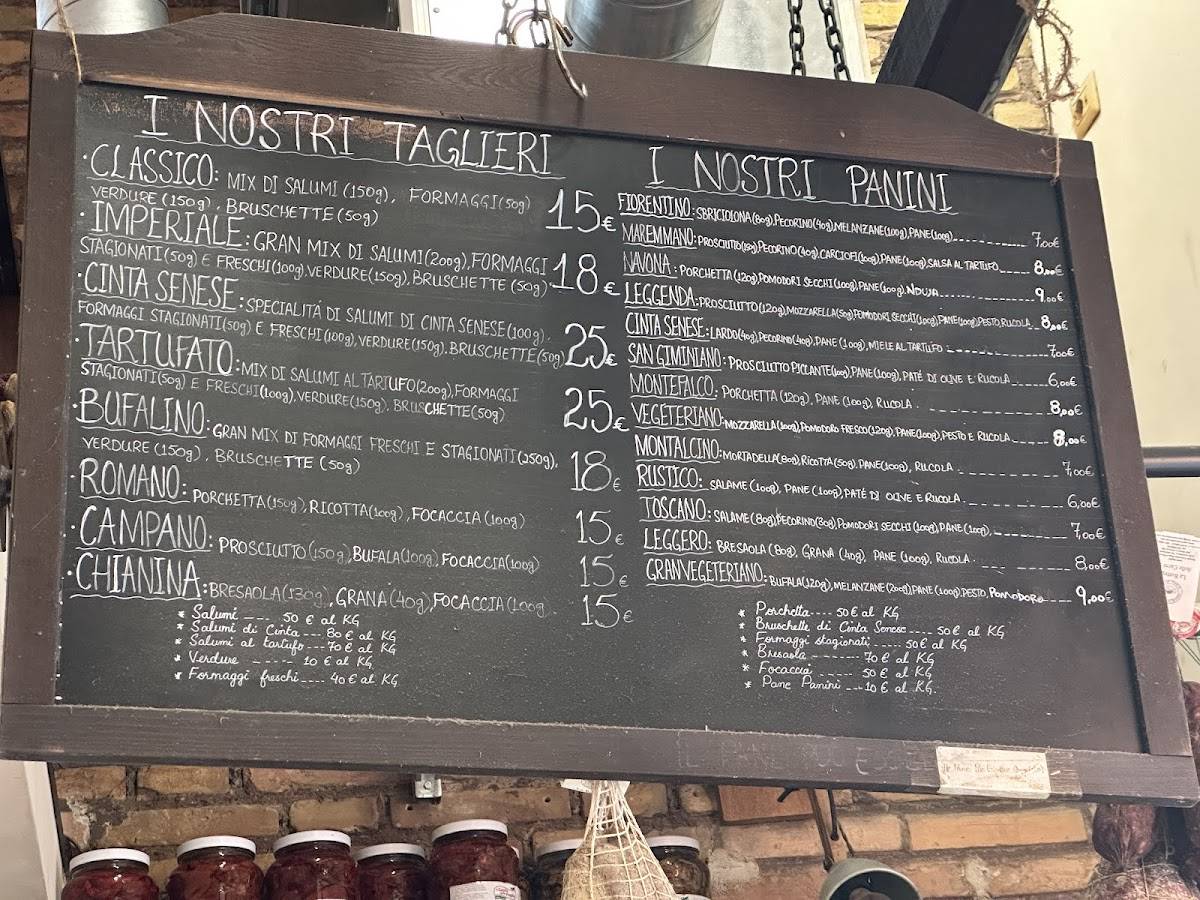 I NOSTRI TAGLIERI
·CLASSICO: MIX DI SALUMI (150g), FORMAGGI (50g)
VERDURE (150g), BRUSCHETTE (50g) 15€
·IMPERIALE: GRAN MIX DI SALUMI (200g), FORMAGGI
STAGIONATI (50g) E FRESCHI (100g), VERDURE (150g), BRUSCHETTE (50g) 18€
·CINTA SENESE: SPECIALITÁ DI SALUMI DI CINTA SENESE (100g),
FORMAGGI STAGIONATI (50g) E FRESCHI (100g), VERDURE (150g), BRUSCHETTE (50g) 25€
·TARTUFATO: MIX DI SALUMI AL TARTUFO (200g), FORMAGGI
STAGIONATI (50g) E FRESCHI (100g), VERDURE (150g), BRUSCHETTE (50g) 25€
·BUFALINO: GRAN MIX DI FORMAGGI FRESCHI E STAGIONATI (250g),
VERDURE (150g), BRUSCHETTE (50g) 18€
·ROMANO: PORCHETTA (150g), RICOTTA (100g), FOCACCIA (100g) 15€
·CAMPANO: PROSCIUTTO (150g), BUFALA (100g), FOCACCIA (100g) 15€
·CHIANINA: BRESAOLA (130g), GRANA (40g), FOCACCIA (100g) 15€
* Salumi ---- 50 € al KG
* Salumi di Cinta --- 80 € al KG
* Salumi al tartufo --- 70 € al KG
* Verdure ----- 10 € al KG
* Formaggi freschi ---- 40 € al KG
I NOSTRI PANINI
FIORENTINO: SBRICIOLONA (80g), PECORINO (40g), MELANZANE (100g), PANE (100g) 7,00€
MAREMMANO: PROSCIUTTO, PECORINO, CARCIOFI (100g), PANE (100g), SALSA AL TARTUFO 8,00€
NAVONA: PORCHETTA (120g), POMODORI SECCHI (100g), PANE (100g), NDUJA 9,00€
LEGGENDA: PROSCIUTTO (120g), MOZZARELLA (50g), POMODORI SECCHI (100g), PANE (100g), PESTO, RUCOLA 8,00€
CINTA SENESE: LARDO (40g), PECORINO (40g), PANE (100g), MIELE AL TARTUFO 7,00€
SAN GIMINIANO: PROSCIUTTO PICCANTE (100g), PANE (100g), PATÉ DI OLIVE E RUCOLA 6,00€
MONTEFALCO: PORCHETTA (120g), PANE (100g), RUCOLA 8,00€
VEGETERIANO: MOZZARELLA (100g), POMODORO FRESCO (120g), PANE (100g), PESTO E RUCOLA 8,00€
MONTALCINO: MORTADELLA (80g), RICOTTA (50g), PANE (100g), RUCOLA 7,00€
RUSTICO: SALAME (100g), PANE (100g), PATÉ DI OLIVE E RUCOLA 6,00€
TOSCANO: SALAME (80g), PECORINO (30g), POMODORI SECCHI (100g), PANE (100g) 7,00€
LEGGERO: BRESAOLA (80g), GRANA (40g), PANE (100g), RUCOLA 8,00€
GRANVEGETERIANO: BUFALA (120g), MELANZANE (200g), PANE (100g), PESTO, POMODORO 9,00€
* Porchetta ---- 50 € al KG
* Bruschette di Cinta Senese ---- 50 € al KG
* Formaggi stagionati ---- 50 € al KG
* Bresaola -------- 70 € al KG
* Focaccia ----- 50 € al KG
* Pane Panini --- 10 € al KG.